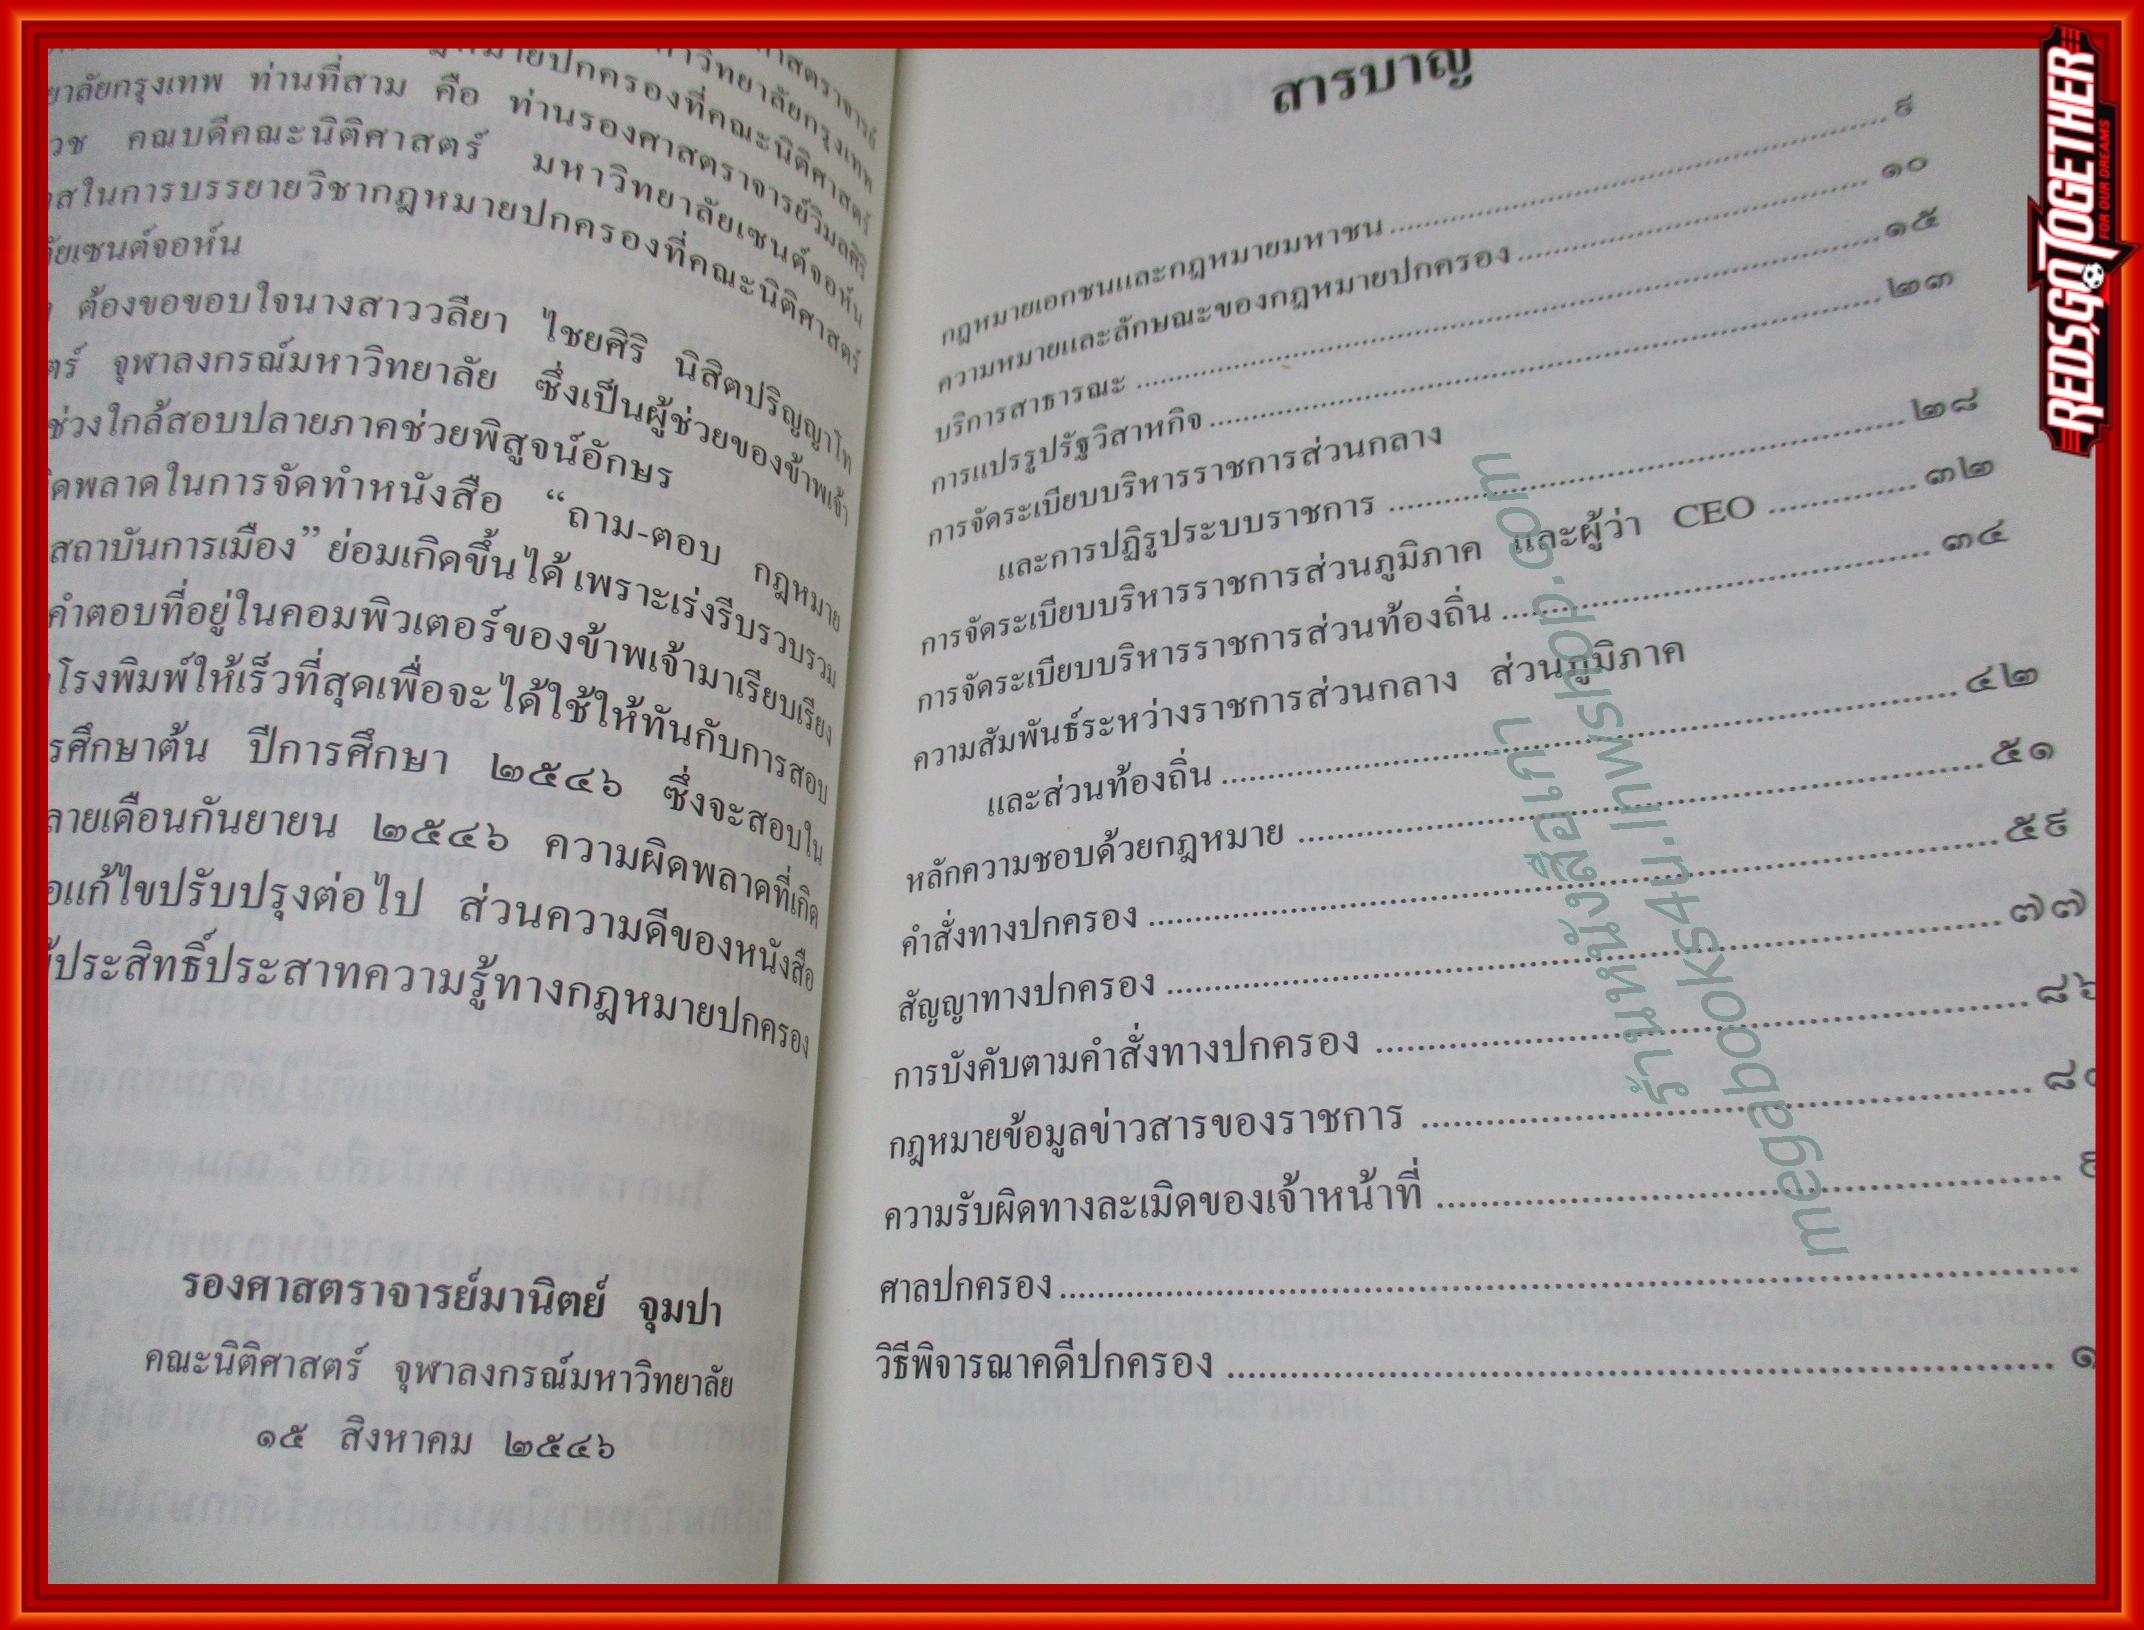 ศาสตราจารย์
หาวิทยาลัยกรุงเทพ
กฎหมายปกครองที่คณะนิติศาสตร์
ยาลัยกรุงเทพ ท่านที่สาม คือ ท่านรองศาสตราจารย์วิมลศิริ
วช คณบดีคณะนิติศาสตร์ มหาวิทยาลัยเซนต์จอห์น
าสในการบรรยายวิชากฎหมายปกครองที่คณะนิติศาสตร์
ัยเซนต์จอห์น
ต้องขอขอบใจนางสาววลียา ไชยศิริ นิสิตปริญญาโท
ตร์ จุฬาลงกรณ์มหาวิทยาลัย ซึ่งเป็นผู้ช่วยของข้าพเจ้า
ช่วงใกล้สอบปลายภาคช่วยพิสูจน์อักษร
ิดพลาดในการจัดทำหนังสือ “ถาม-ตอบ กฎหมาย
สถาบันการเมือง” ย่อมเกิดขึ้นได้ เพราะเร่งรีบรวบรวม
คำตอบที่อยู่ในคอมพิวเตอร์ของข้าพเจ้ามาเรียบเรียง
โรงพิมพ์ให้เร็วที่สุดเพื่อจะได้ใช้ให้ทันกับการสอบ
รศึกษาต้น ปีการศึกษา ๒๕๔๖ ซึ่งจะสอบใน
ลายเดือนกันยายน ๒๕๔๖ ความผิดพลาดที่เกิด
อแก้ไขปรับปรุงต่อไป ส่วนความดีของหนังสือ
ู้ประสิทธิ์ประสาทความรู้ทางกฎหมายปกครอง
รองศาสตราจารย์มานิตย์ จุมปา
คณะนิติศาสตร์ จุฬาลงกรณ์มหาวิทยาลัย
๑๕ สิงหาคม ๒๕๔๖
สารบาญ
กฎหมายเอกชนและกฎหมายมหาชน ........ ๙
ความหมายและลักษณะของกฎหมายปกครอง ........ ๑๐
บริการสาธารณะ ........ ๑๕
การแปรรูปรัฐวิสาหกิจ ........ ๒๓
การจัดระเบียบบริหารราชการส่วนกลาง
และการปฏิรูประบบราชการ ........ ๒๘
การจัดระเบียบบริหารราชการส่วนภูมิภาค และผู้ว่า CEO ........ ๓๒
การจัดระเบียบบริหารราชการส่วนท้องถิ่น ........ ๓๔
ความสัมพันธ์ระหว่างราชการส่วนกลาง ส่วนภูมิภาค
และส่วนท้องถิ่น ........ ๔๒
หลักความชอบด้วยกฎหมาย ........ ๕๑
คำสั่งทางปกครอง ........ ๕๙
สัญญาทางปกครอง ........ ๗๗
การบังคับตามคำสั่งทางปกครอง ........ ๘๖
กฎหมายข้อมูลข่าวสารของราชการ ........ ๘
ความรับผิดทางละเมิดของเจ้าหน้าที่ ........ ๙
ศาลปกครอง ........
วิธีพิจารณาคดีปกครอง ........ ๑
ร้านหนังสือเก่า
megabooks4u.lnwshop.com
REDS,GO TOGETHER
FOR OUR DREAMS